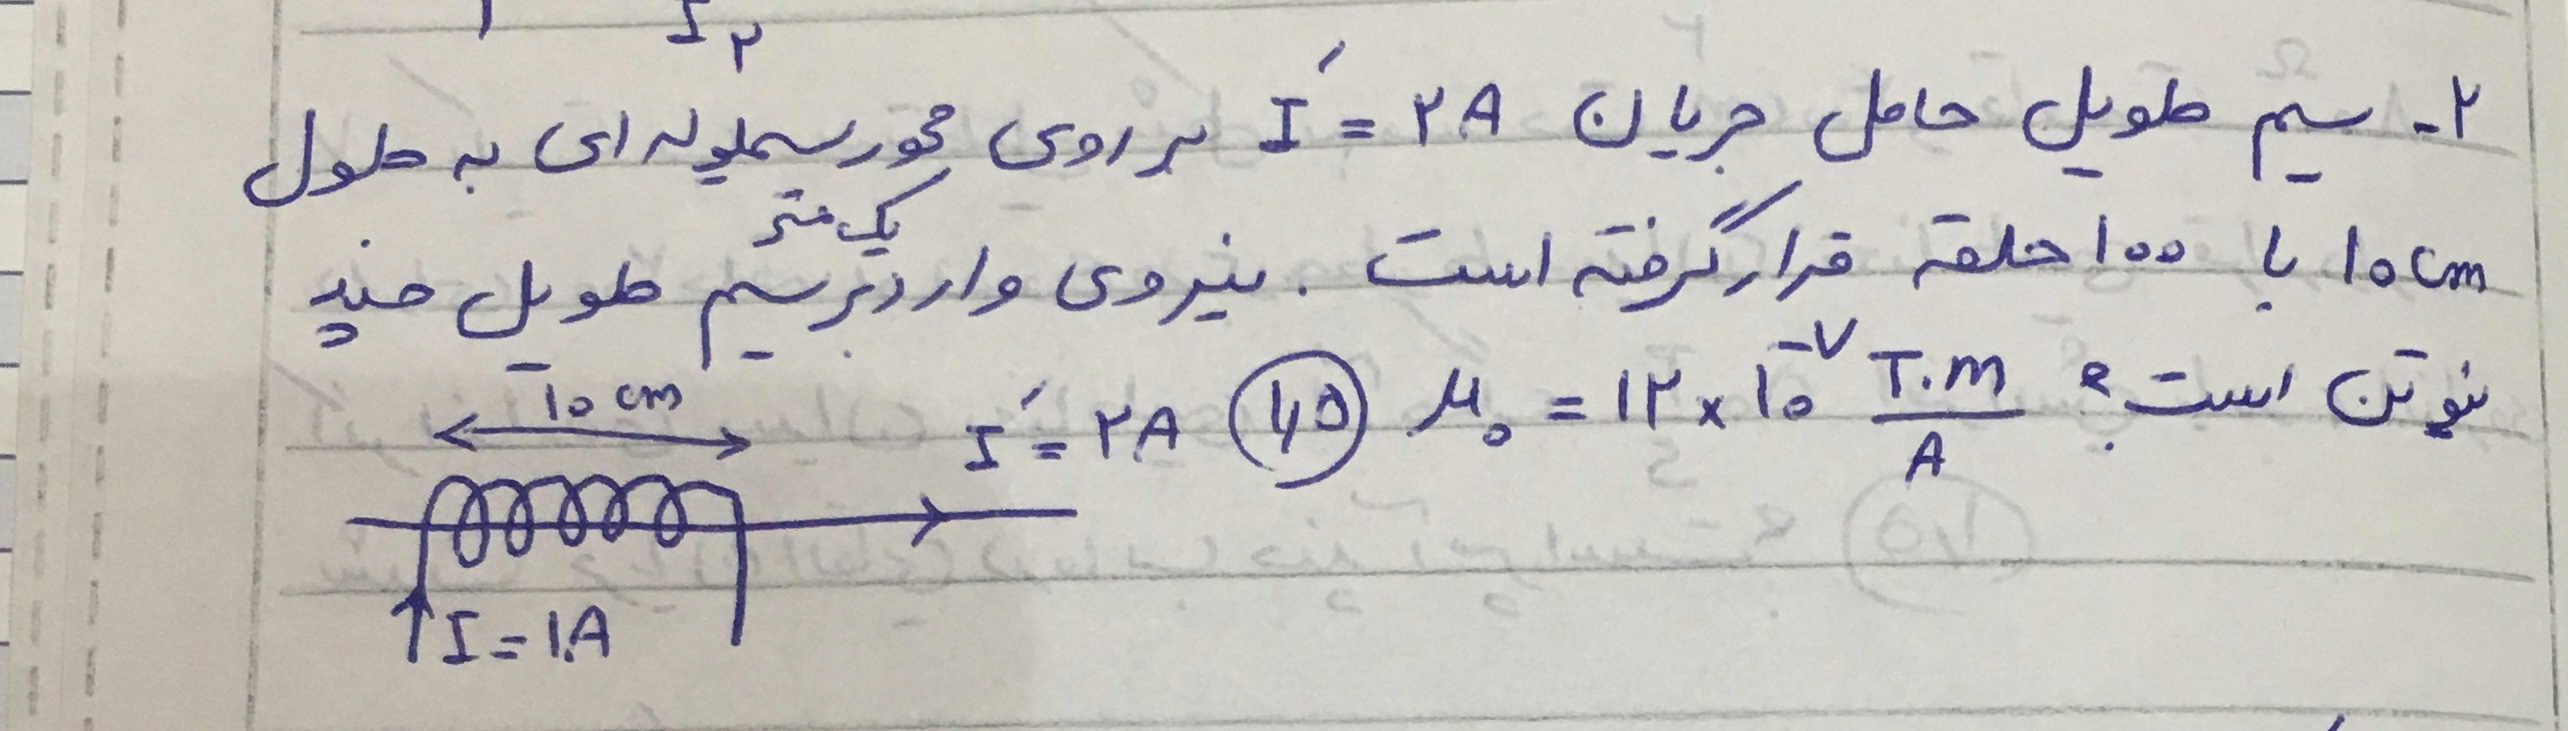 I۲
۲- سیم طویل حامل جریان I′ = ۲A بر روی محور سیملوله ای به طول
۱۰cm با ۱۰۰ حلقه قرار گرفته است. نیروی وارد بر یک متر سیم طویل چند
نیوتن است؟ μ₀ = ۱۲×۱۰⁻⁷ T.m/A ۱,۵
۱۰ cm
I′ = ۲A
I = ۱A